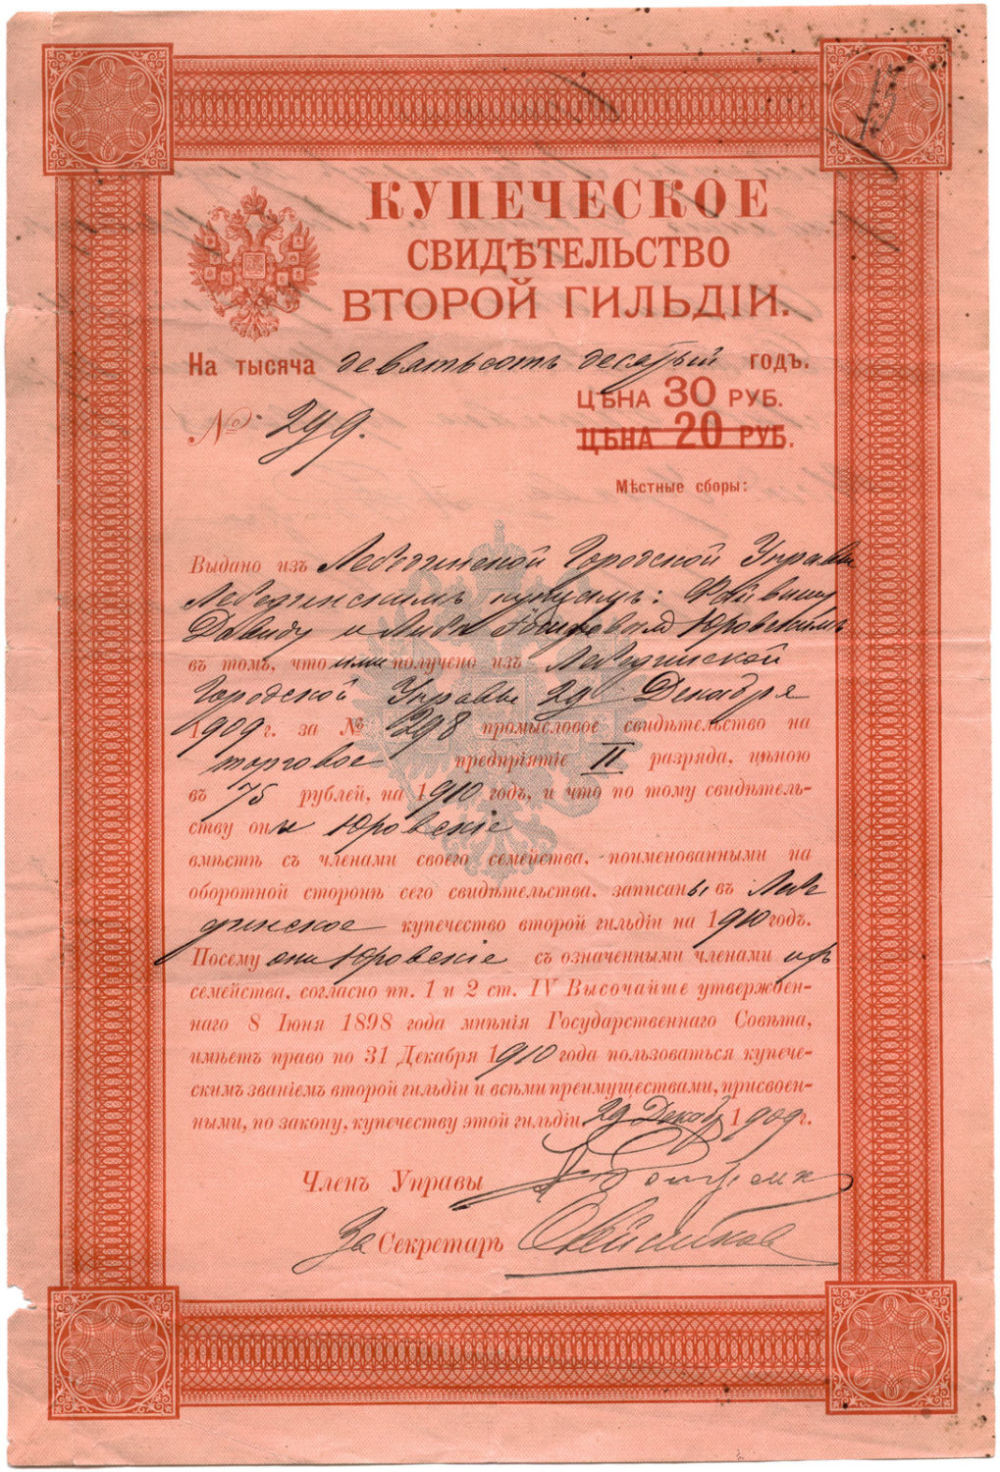 КУПЕЧЕСКОЕ
СВИДѢТЕЛЬСТВО
ВТОРОЙ ГИЛЬДІИ.
На тысяча девятьсотъ десятый годъ.
ЦѢНА 30 РУБ.
№ 299.
ЦѢНА 20 РУБ.
Мѣстные сборы:
Выдано изъ Лебединской Городской Управы
Лебединскимъ купцамъ:
Давиду и Юровскимъ
въ томъ, что ими получено изъ Лебединской
Городской Управы 29 Декабря
1909 г. за № 298 промысловое свидѣтельство на
торговое предпріятіе II разряда, цѣною
въ 75 рублей, на 1910 годъ, и что по тому свидѣтель-
ству они Юровскіе
вмѣстѣ съ членами своего семейства, поименованными на
оборотной сторонѣ сего свидѣтельства, записаны въ Лебе
динское купечество второй гильдіи на 1910 годъ.
Посему они Юровскіе съ означенными членами ихъ
семейства, согласно пп. 1 и 2 ст. IV Высочайше утвержден-
наго 8 Іюня 1898 года мнѣнія Государственнаго Совѣта,
имѣетъ право по 31 Декабря 1910 года пользоваться купече-
скимъ званіемъ второй гильдіи и всѣми преимуществами, присвоен-
ными, по закону, купечеству этой гильдіи 29 Декабр 1909 г.
Членъ Управы
За Секретарь